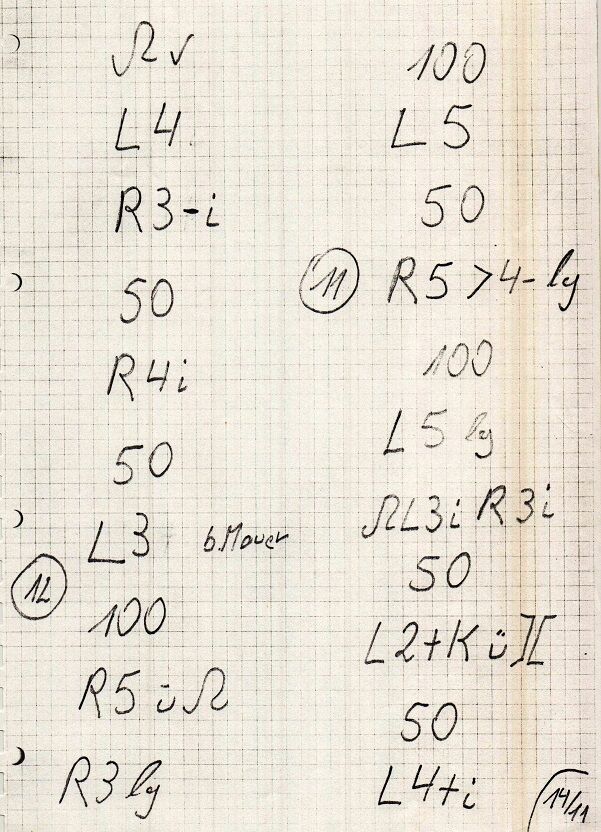 Ω v
L4
R3-i
50
R4i
50
L3 b.Mauer
12
100
R5 ü Ω
R3 lg
100
L5
50
11 R5 >4- lg
100
L5 lg
ΩL3i R3i
50
L2+K ü][
50
L4+i
14/11